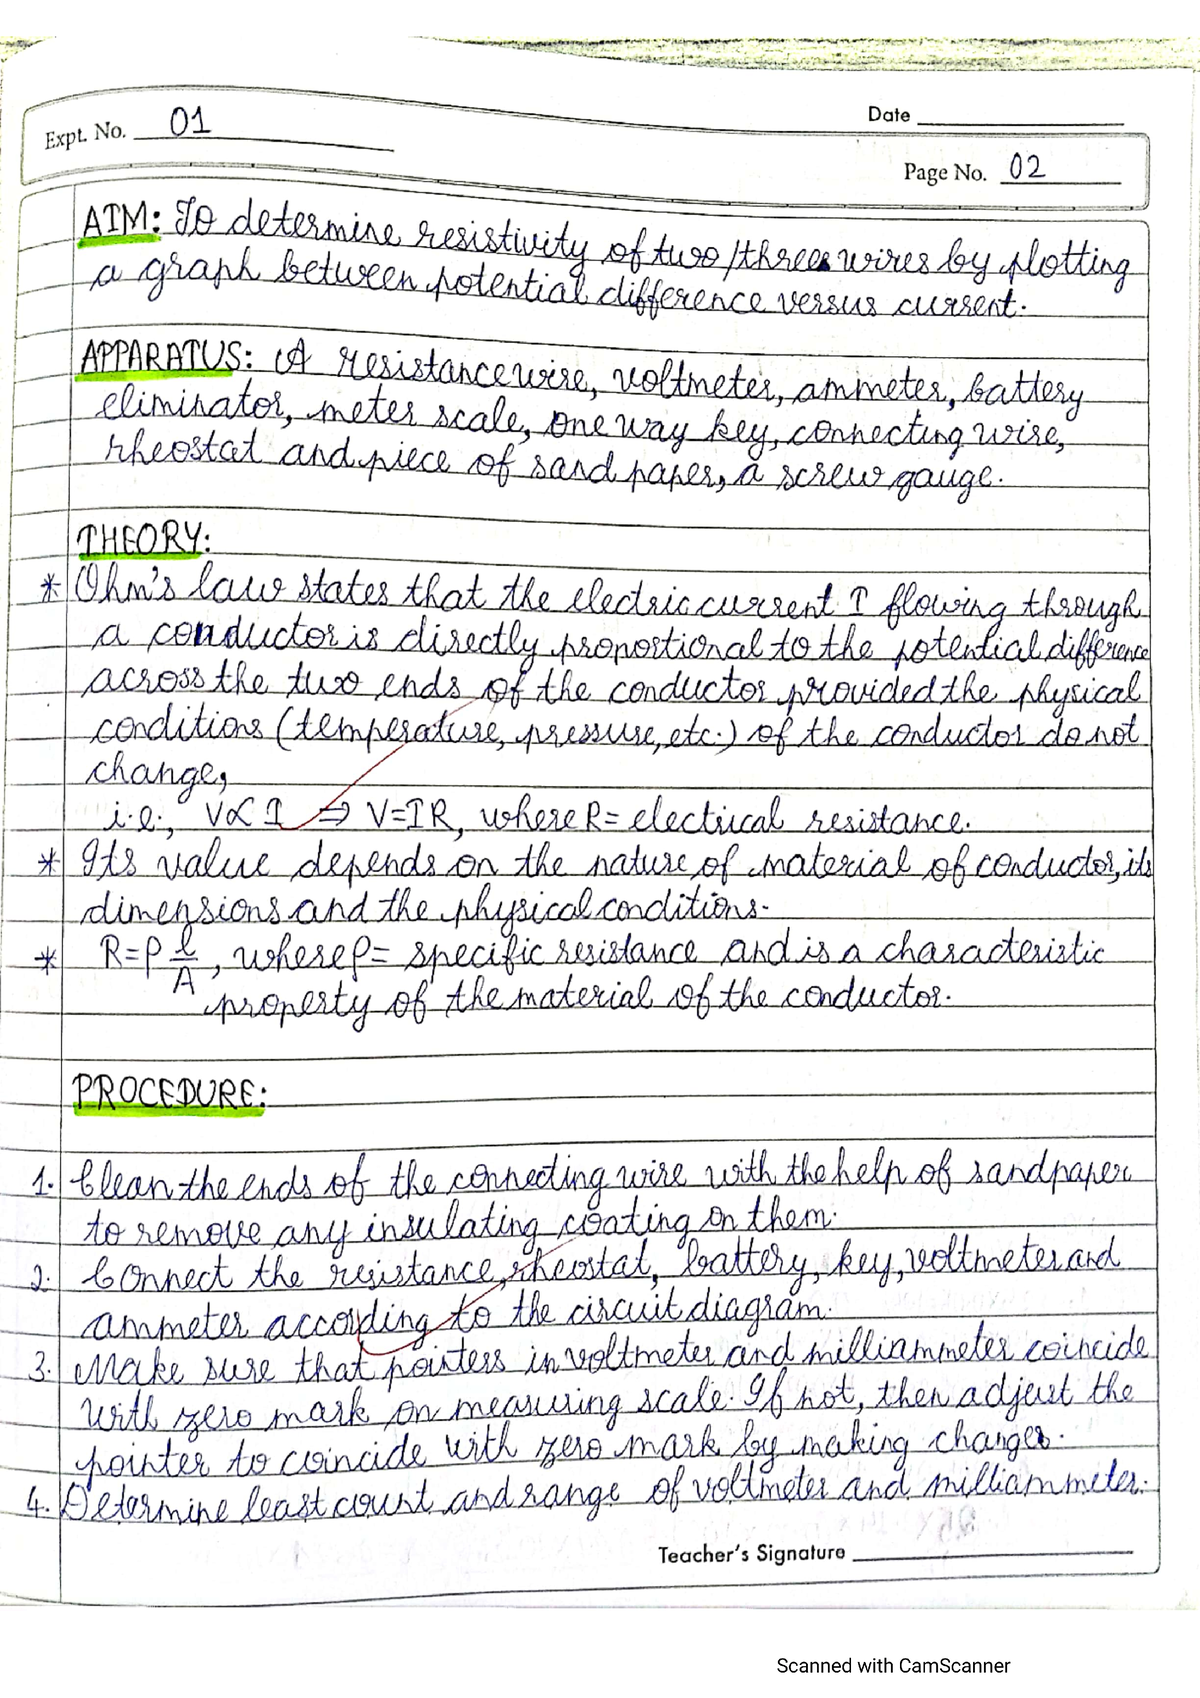 Expt. No. 01
Date
Page No. 02
AIM: To determine resistivity of two/three wires by plotting
a graph between potential difference versus current.
APPARATUS: A resistance wire, voltmeter, ammeter, battery
eliminator, meter scale, one way key, connecting wire,
rheostat and piece of sand paper, a screw gauge.
THEORY:
* Ohm's law states that the electric current I flowing through
a conductor is directly proportional to the potential difference
across the two ends of the conductor provided the physical
conditions (temperature, pressure, etc.) of the conductor do not
change,
i.e., V∝I ⇒ V=IR, where R= electrical resistance.
* Its value depends on the nature of material of conductor, its
dimensions and the physical conditions.
* R=ρ l/A, where ρ= specific resistance and is a characteristic
property of the material of the conductor.
PROCEDURE:
1. Clean the ends of the connecting wire with the help of sandpaper
to remove any insulating coating on them.
2. Connect the resistance, rheostat, battery, key, voltmeter and
ammeter according to the circuit diagram.
3. Make sure that pointers in voltmeter and milliammeter coincide
with zero mark on measuring scale. If not, then adjust the
pointer to coincide with zero mark by making changes.
4. Determine least count and range of voltmeter and milliammeter.
Teacher's Signature
Scanned with CamScanner